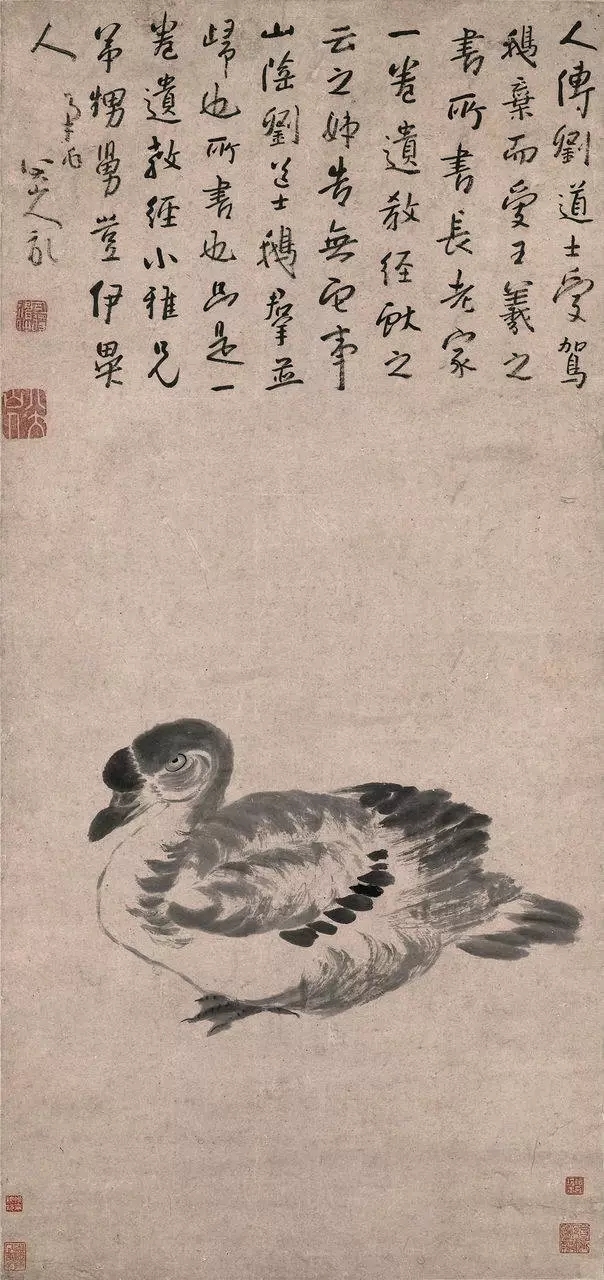 人傳劉道士愛駕
鵝棄而愛王羲之
書所書長老家
一卷遺教經獻之
云之姊告無它事
山陰劉道士鵝羣並
歸也所書也只是一
卷遺教經小雅兄
弟甥舅豈伊異
人
八山人記